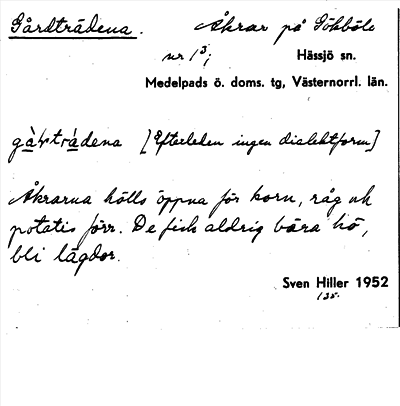 Gårdträdena. Åkrar på Gökböle
nr 1³; Hässjö sn.
Medelpads ö. doms. tg, Västernorrl. län.
[Efterleden ingen dialektform]
Åkrarna hölls öppna för korn, råg och
potatis förr. De fick aldrig bära hö,
bli lägdor.
Sven Hiller 1952